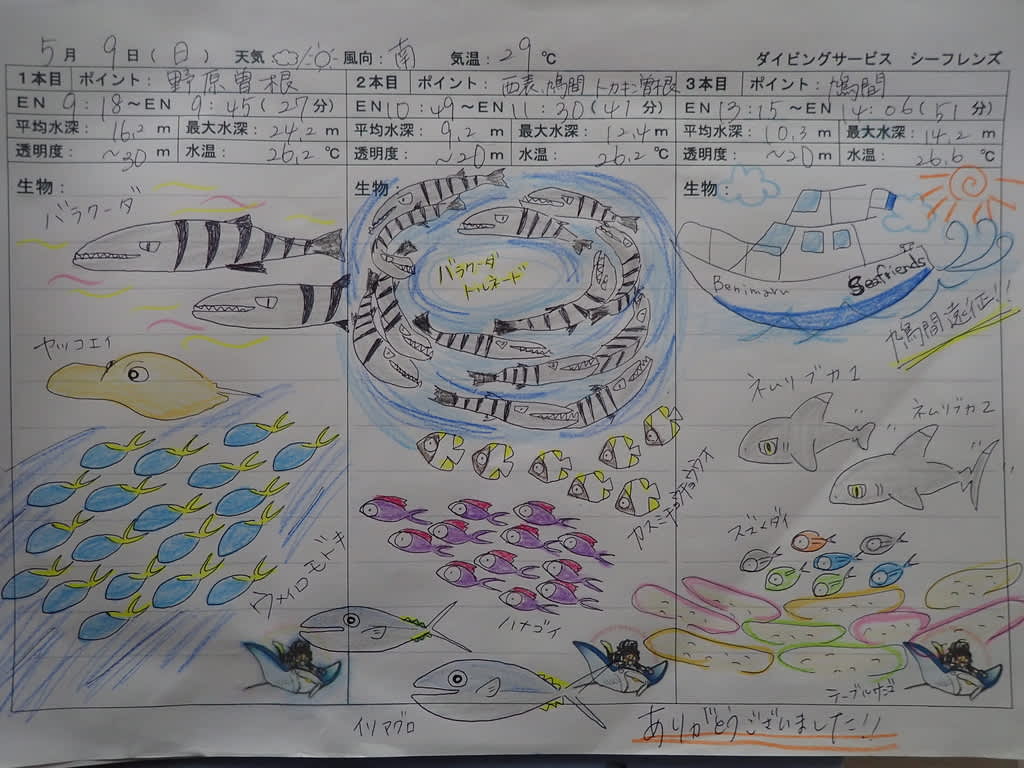 5月 9日(日) 天気 風向:南 気温:29℃ ダイビングサービス シーフレンズ
1本目 ポイント:野原曽根
EN 9:18~EN 9:45(27分)
平均水深:16.2m 最大水深:24.2m
透明度:~30m 水温:26.2℃
生物:
バラクーダ
ヤッコエイ
ウメイロモドキ
2本目 ポイント:西表、鳩間 トカキン曽根
EN 10:49~EN 11:30(41分)
平均水深:9.2m 最大水深:12.4m
透明度:~20m 水温:26.2℃
生物:
バラクーダ
トルネード
カスミチョウチョウウオ
ハナゴイ
イソマグロ
3本目 ポイント:鳩間
EN 13:15~EN 14:06(51分)
平均水深:10.3m 最大水深:14.2m
透明度:~20m 水温:26.6℃
生物:
Benimaru
Seafriends
鳩間遠征!!
ネムリブカ1
ネムリブカ2
スズメダイ
テーブルサンゴ
ありがとうございました!!